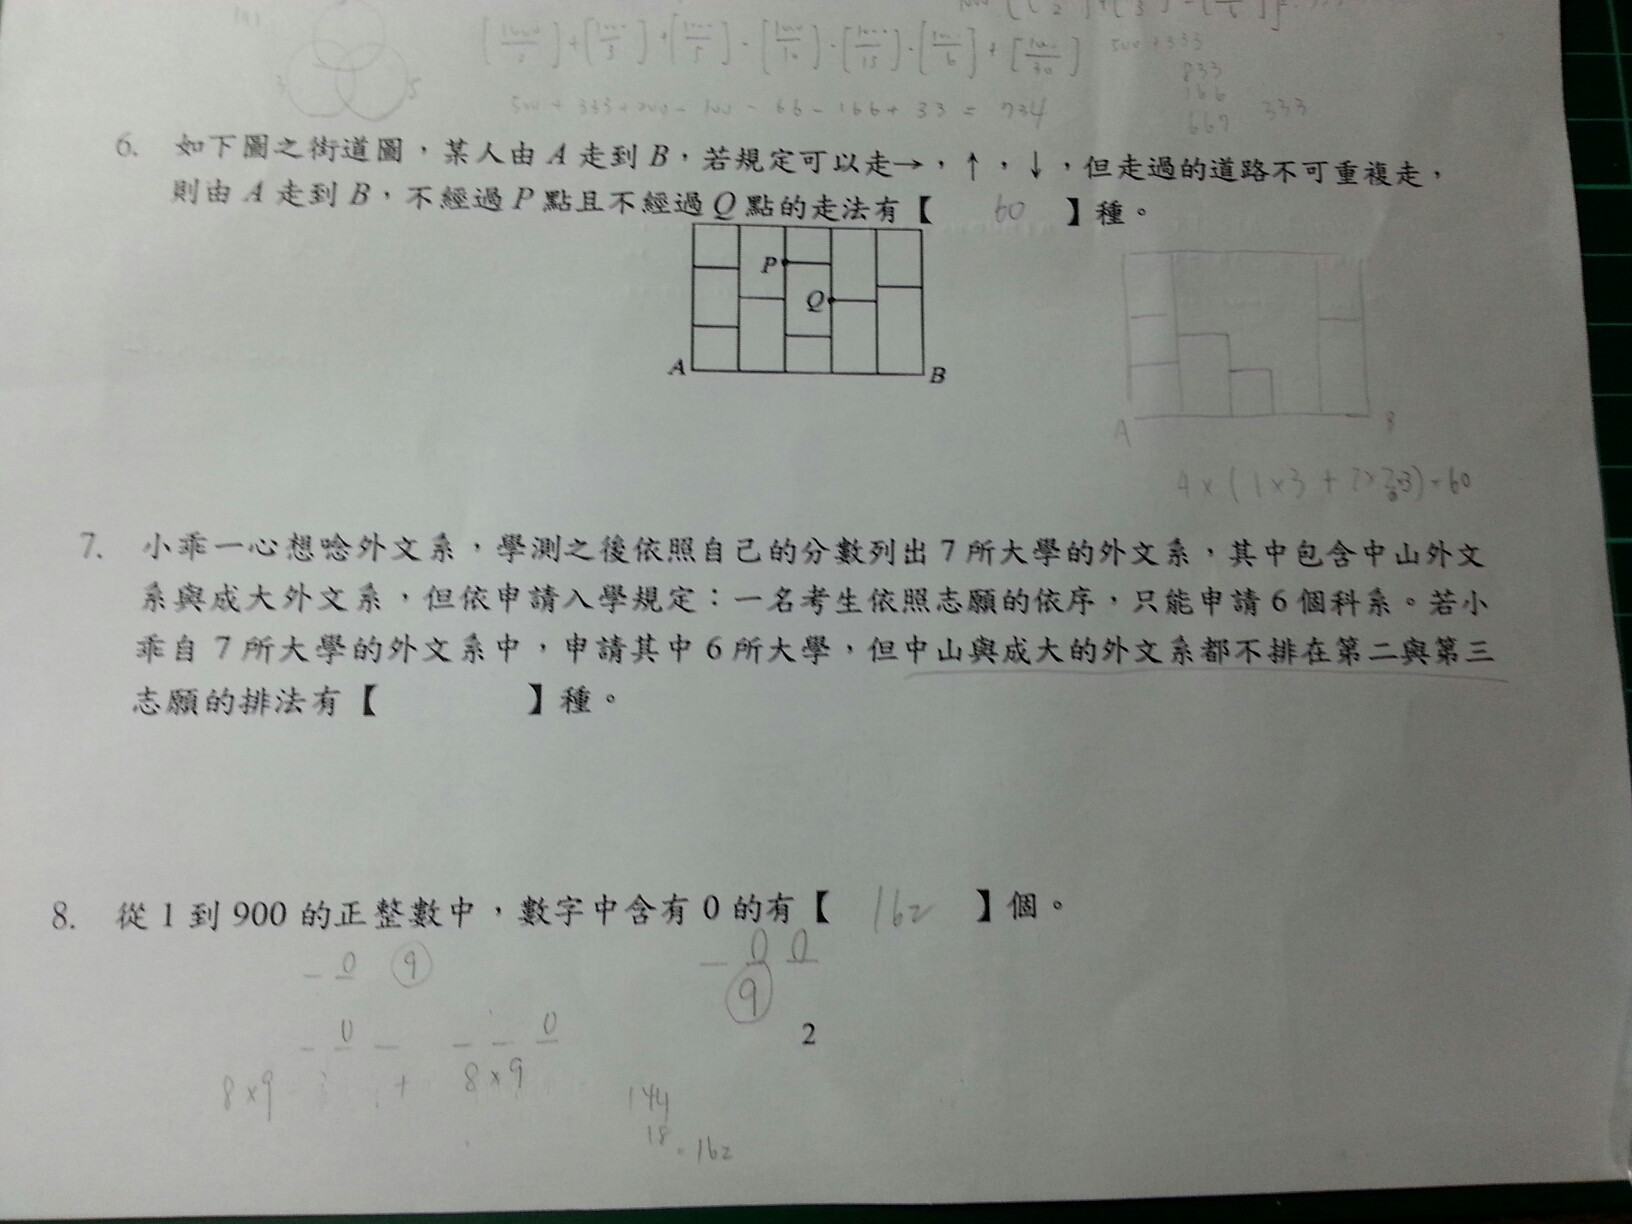 [1000/2]+[1000/3]+[1000/5]-[1000/10]-[1000/15]-[1000/6]+[1000/30] 500+333
833
166
667 333
3 5
500+333+200-100-66-166+33=734
6. 如下圖之街道圖，某人由 A 走到 B，若規定可以走→，↑，↓，但走過的道路不可重複走，
則由 A 走到 B，不經過 P 點且不經過 Q 點的走法有【 60 】種。
P
Q
A B
A B
4×(1×3+
)=60
7. 小乖一心想唸外文系，學測之後依照自己的分數列出 7 所大學的外文系，其中包含中山外文
系與成大外文系，但依申請入學規定：一名考生依照志願的依序，只能申請 6 個科系。若小
乖自 7 所大學的外文系中，申請其中 6 所大學，但中山與成大的外文系都不排在第二與第三
志願的排法有【 】種。
8. 從 1 到 900 的正整數中，數字中含有 0 的有【 162 】個。
_ 0 9 _ 0 0
9
_ 0 _ _ _ 0
2
8×9 + 8×9
144
18
=162